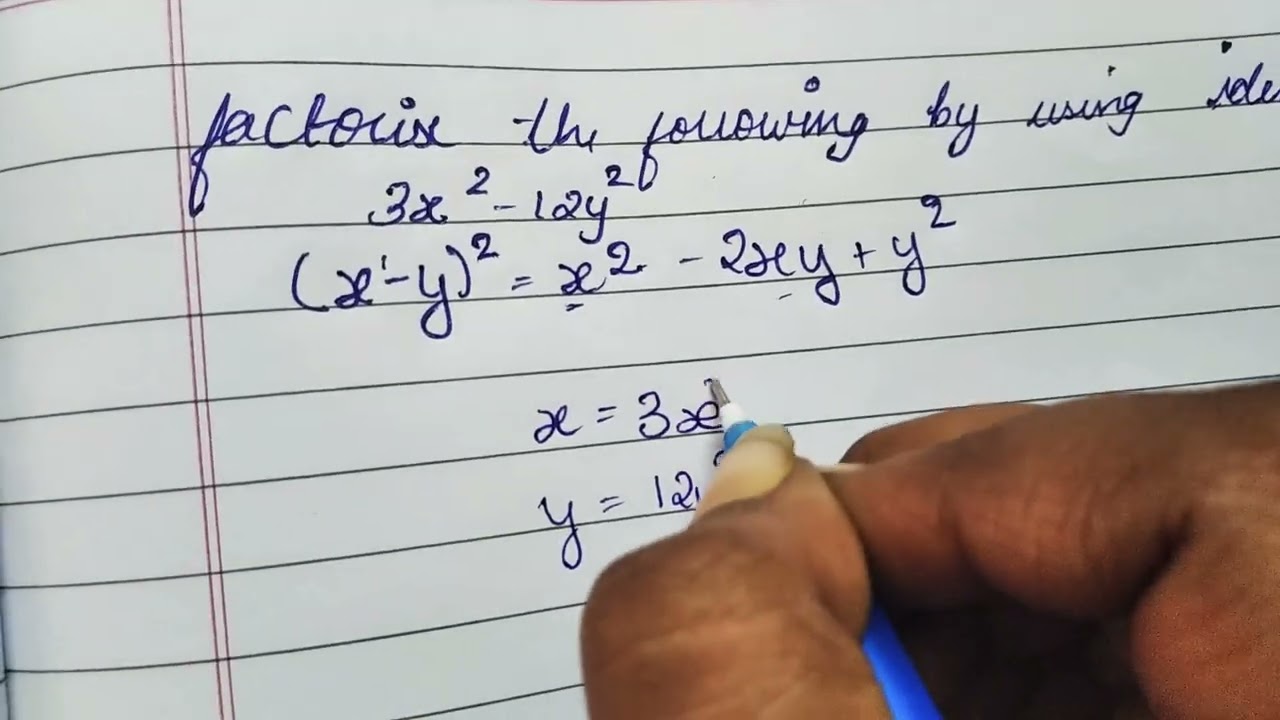 factorise the following by using
3x² - 12y²
(x - y)² = x² - 2xy + y²
x = 3x²
y = 12